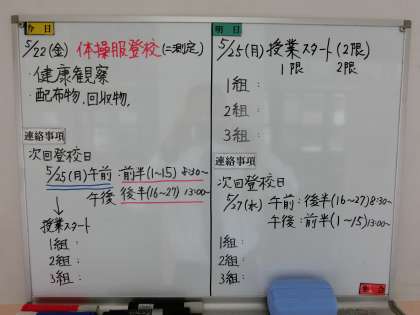 今日
5/22(金) 体操服登校(二測定)
・健康観察
・配布物,回収物,
連絡事項
次回登校日
5/25(月)午前:前半(1~15) 8:30~
午後 後半(16~27) 13:00~
↓
授業スタート
1組:
2組:
3組:
明日
5/25(月)授業スタート(2限)
1限 2限
1組:
2組:
3組:
連絡事項
次回登校日
5/27(水) 午前:後半(16~27)8:30~
午後:前半(1~15)13:00~
1組:
2組:
3組: